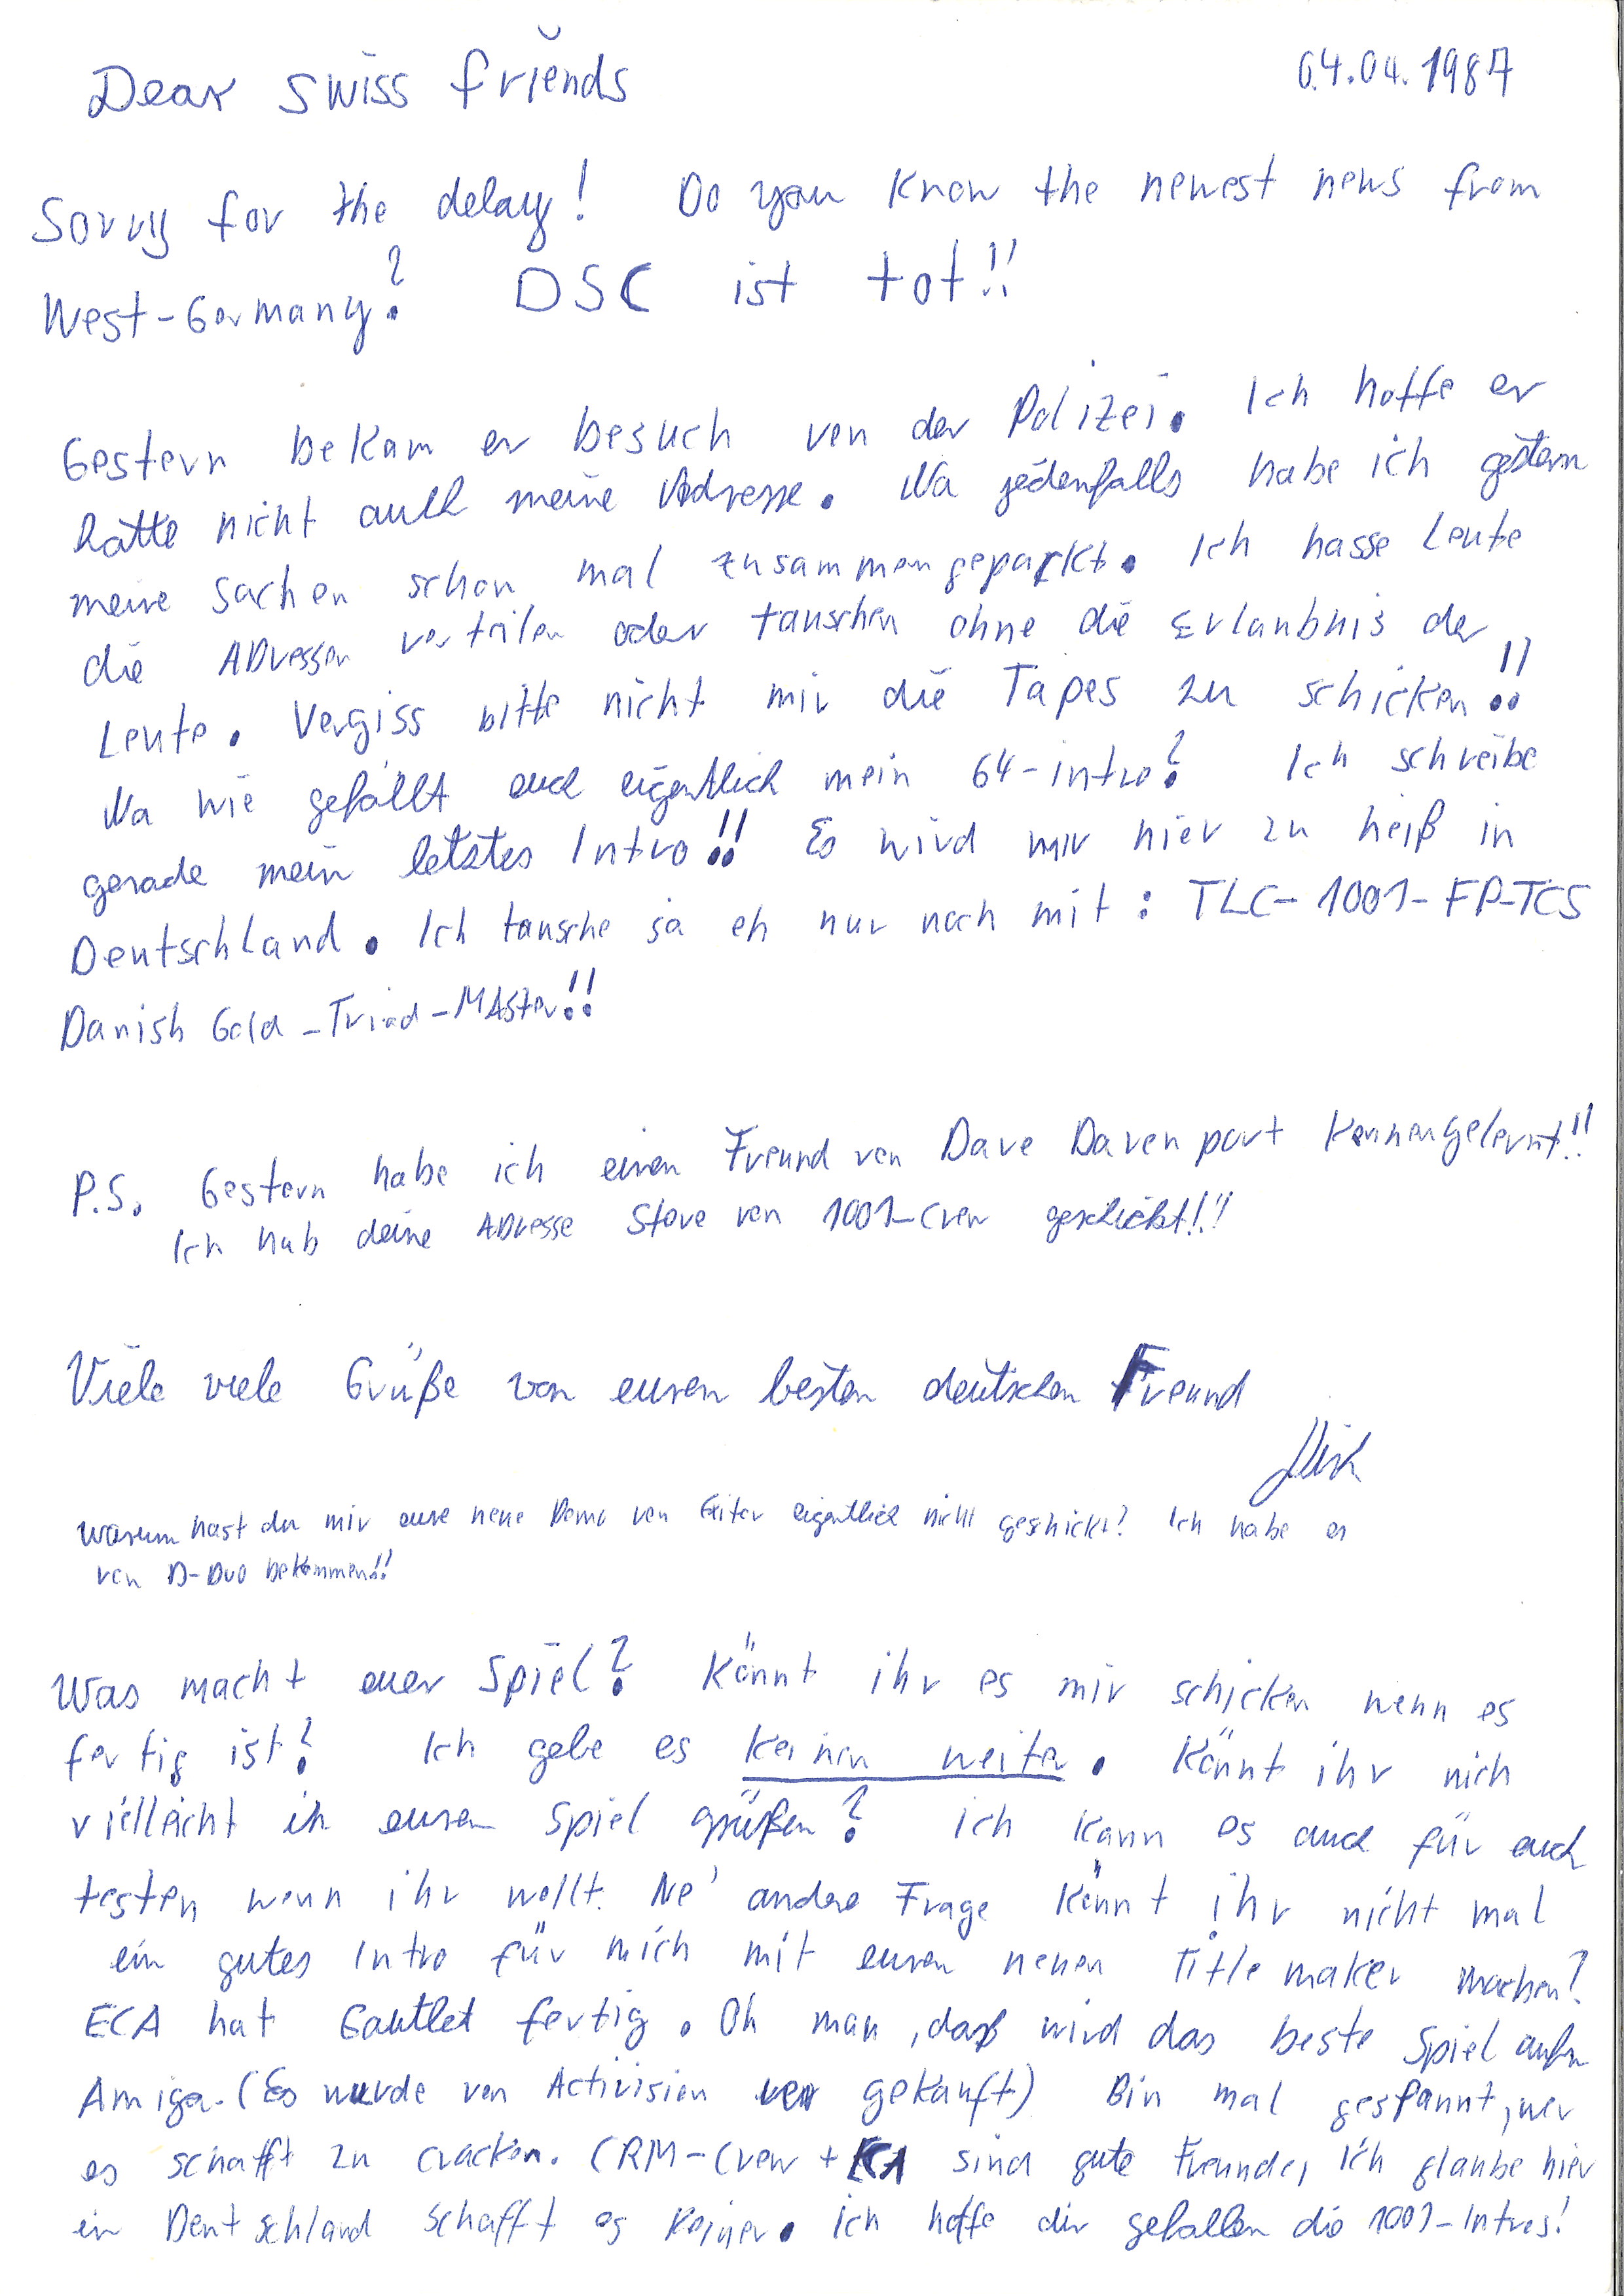 Dear Swiss friends 04.04.1987
Sorry for the delay! Do you know the newest news from
West-Germany? DSC ist tot!!
Gestern bekam er besuch von der Polizei. Ich hoffe er
hatte nicht auch meine Adresse. Na jedenfalls habe ich gestern
meine Sachen schon mal zusammengepackt. Ich hasse Leute
die ADressen verteilen oder tauschen ohne die Erlaubnis der
Leute. Vergiss bitte nicht mir die Tapes zu schicken!!
Na wie gefällt euch eigentlich mein 64-intro? Ich schreibe
gerade mein letztes Intro!! Es wird mir hier zu heiß in
Deutschland. Ich tausche ja eh nur noch mit: TLC-1001-FP-TCS
Danish Gold-Triad-MAster!!
P.S. Gestern habe ich einen Freund von Dave Davenport Kennengelernt!!
Ich hab deine ADresse Steve von 1001-Crew geschickt!!
Viele viele Grüße von euren besten deutschen Freund
Dirk
Warum hast du mir eure neue Demo von eigentlich nicht geschickt? Ich habe es
von D-Duo bekommen!!
Was macht euer Spiel? Könnt ihr es mir schicken wenn es
fertig ist? Ich gebe es keinen weiter. Könnt ihr mich
vielleicht in euren Spiel grüßen? ich kann es auch für euch
testen wenn ihr wollt. Ne' andere Frage Könnt ihr nicht mal
ein gutes Intro für mich mit euren neuen Titlemaker machen?
ECA hat Gautlet fertig. Oh man, daß wird das beste Spiel aufn
Amiga. (Es wurde von Activision gekauft) Bin mal gespannt, wer
es schafft zu cracken. CRM-Crew + ECA sind gute Freunde, ich glaube hier
in Deutschland schafft es Keiner. ich hoffe dir gefallen die 1001-Intros!